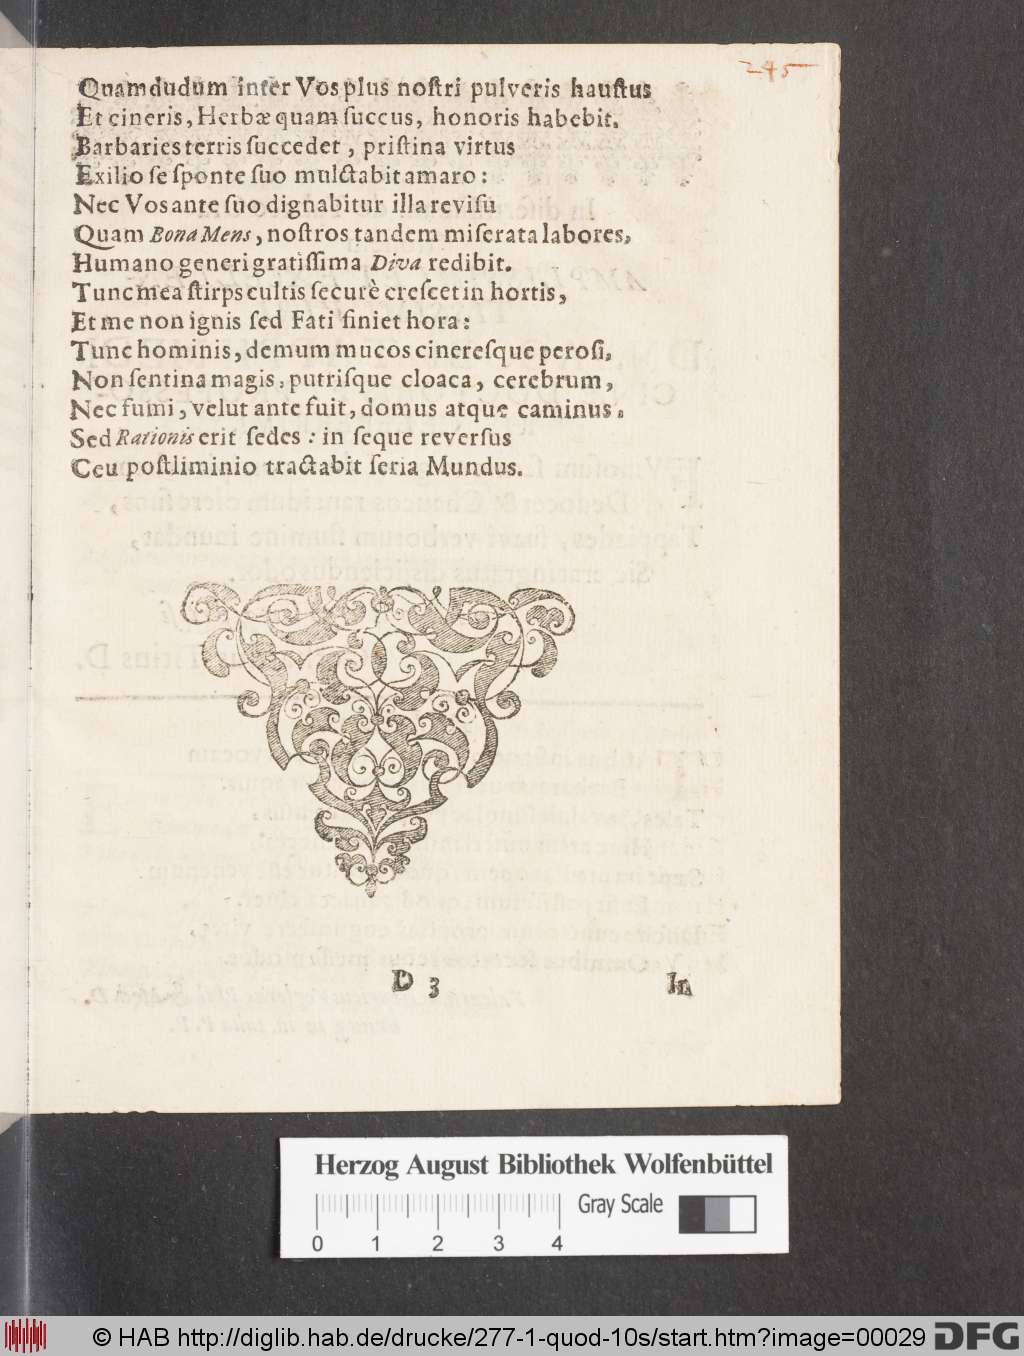 245
Quamdudum inter Vos plus noſtri pulveris hauſtus
Et cineris, Herbæ quam ſuccus, honoris habebit.
Barbaries terris ſuccedet, priſtina virtus
Exilio ſe ſponte ſuo mulctabit amaro:
Nec Vos ante ſuo dignabitur illa reviſu
Quam Bona Mens, noſtros tandem miſerata labores,
Humano generi gratiſſima Diva redibit.
Tunc mea ſtirps cultis ſecurè creſcet in hortis,
Et me non ignis ſed Fati finiet hora:
Tunc hominis, demum mucos cinereſque peroſi,
Non ſentina magis, putriſque cloaca, cerebrum,
Nec fumi, velut ante fuit, domus atque caminus.
Sed Rationis erit ſedes: in ſeque reverſus
Ceu poſtliminio tractabit ſeria Mundus.
D 3
In
Herzog August Bibliothek Wolfenbüttel
Gray Scale
0 1 2 3 4
© HAB http://diglib.hab.de/drucke/277-1-quod-10s/start.htm?image=00029
DFG